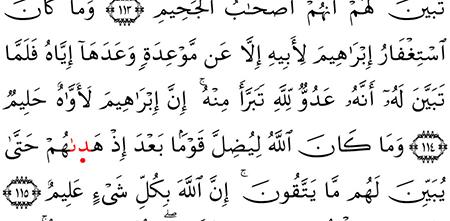 تَبَيَّنَ لَهُمْ أَنَّهُمْ أَصْحَٰبُ ٱلْجَحِيمِ ١١٣ وَمَا كَانَ
ٱسْتِغْفَارُ إِبْرَٰهِيمَ لِأَبِيهِ إِلَّا عَن مَّوْعِدَةٍ وَعَدَهَآ إِيَّاهُ فَلَمَّا
تَبَيَّنَ لَهُۥٓ أَنَّهُۥ عَدُوٌّ لِّلَّهِ تَبَرَّأَ مِنْهُ ۚ إِنَّ إِبْرَٰهِيمَ لَأَوَّٰهٌ حَلِيمٌ
١١٤ وَمَا كَانَ ٱللَّهُ لِيُضِلَّ قَوْمًۢا بَعْدَ إِذْ هَدٜىٰهُمْ حَتَّىٰ
يُبَيِّنَ لَهُم مَّا يَتَّقُونَ ۚ إِنَّ ٱللَّهَ بِكُلِّ شَىْءٍ عَلِيمٌ ١١٥